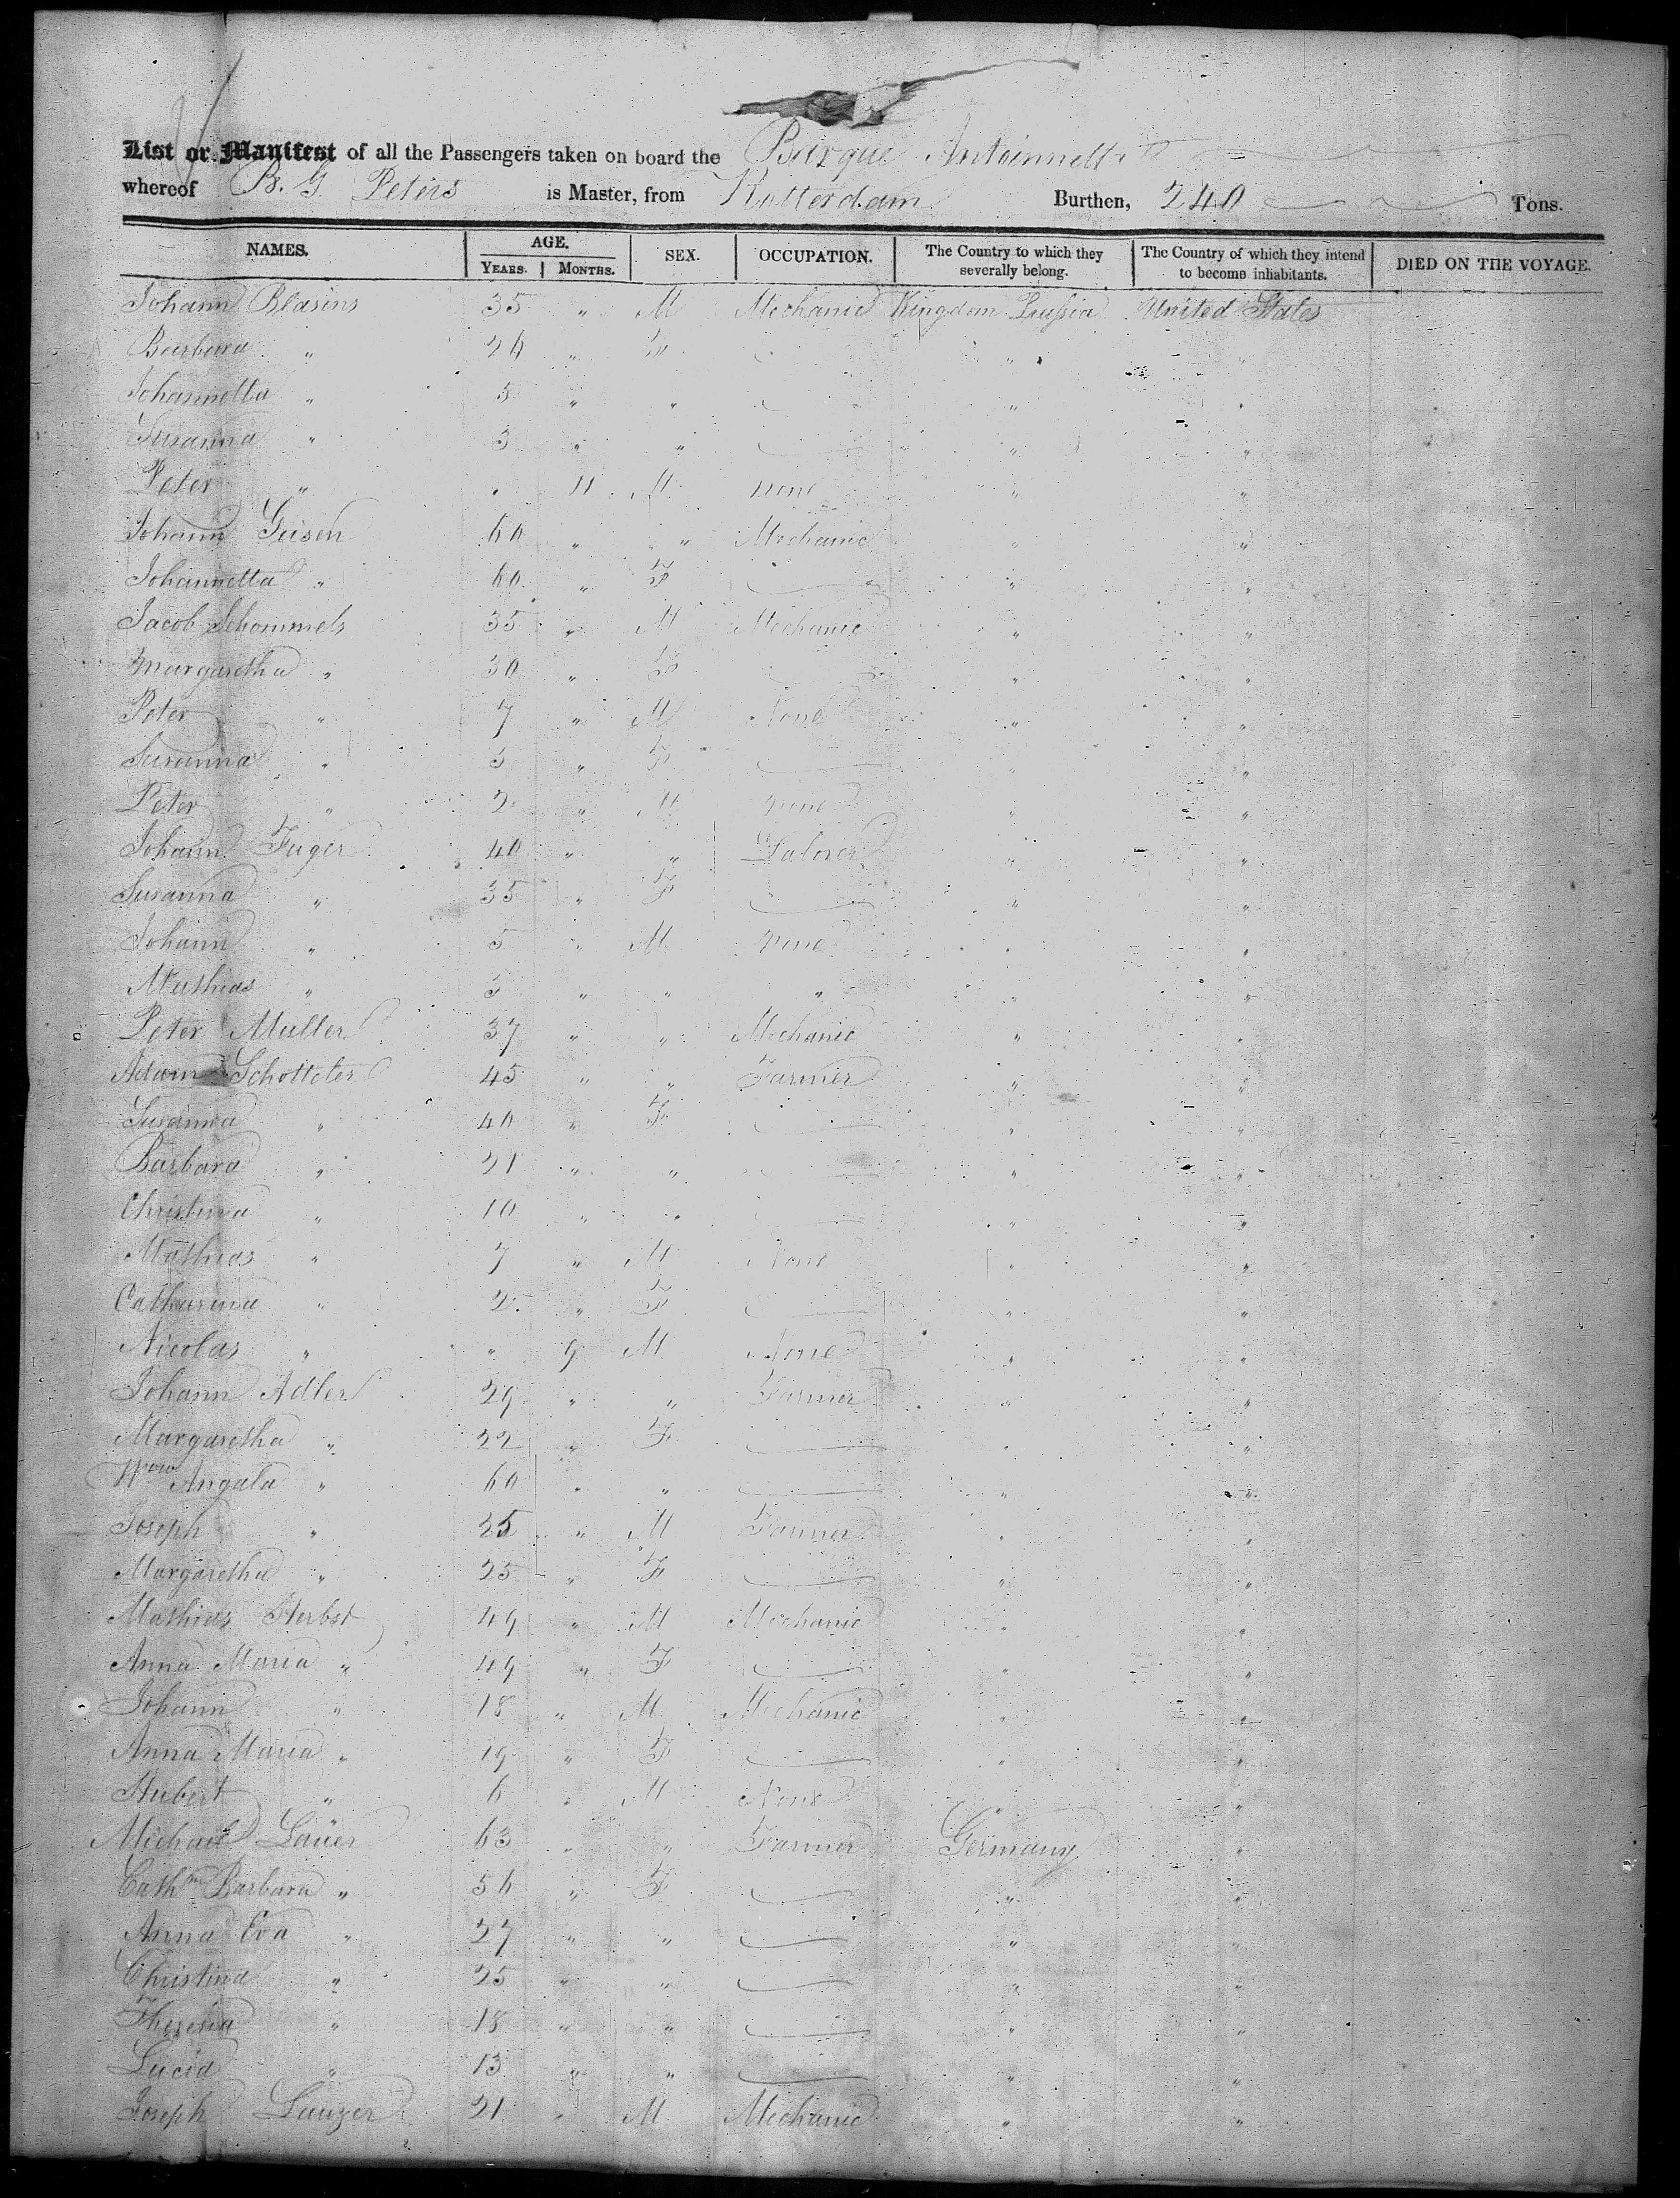 List or Manifest of all the Passengers taken on board the Barque Antoinnetta
whereof B. G. Peters is Master, from Rotterdam Burthen, 240 Tons.
NAMES. AGE. YEARS. MONTHS. SEX. OCCUPATION. The Country to which they severally belong. The Country of which they intend to become inhabitants. DIED ON THE VOYAGE.
Johann Blasius 35 " M Mechanic Kingdom Prussia United States
Barbara " 26 " F " "
Johannetta " 5 " " " "
Susanna " 3 " " " "
Peter " " 11 M none " "
Johann Geisen 60 " " Mechanic " "
Johannetta " 60 " F " "
Jacob Schommels 35 " M Mechanic " "
Margaretha " 30 " F " "
Peter " 7 " M None " "
Susanna " 5 " F " "
Peter " 2 " M none " "
Johann Fuger 40 " " Laborer " "
Susanna " 35 " F " "
Johann " 5 " M none " "
Mathias " 3 " " " " "
Peter Muller 37 " " Mechanic " "
Adam Schotteler 45 " " Farmer " "
Susanna " 40 " F " "
Barbara " 21 " " " "
Christina " 10 " " " "
Mathias " 7 " M None " "
Catharina " 2 " F " "
Nicolas " " 9 M None " "
Johann Adler 29 " " Farmer " "
Margaretha " 22 " F " "
Wow Angala " 60 " " " "
Joseph " 25 " M Farmer " "
Margaretha " 25 " F " "
Mathias Herbst 49 " M Mechanic " "
Anna Maria " 49 " F " "
Johann " 18 " M Mechanic " "
Anna Maria " 19 " F " "
Hubert " 6 " M None "
Michael Lauer 63 " " Farmer Germany "
Cath Barbara " 56 " F " "
Anna Eva " 27 " " " "
Christina " 25 " " " "
Theresia " 18 " " " "
Lucia " 13 " " " "
Joseph Lauzer 21 " M Mechanic " "